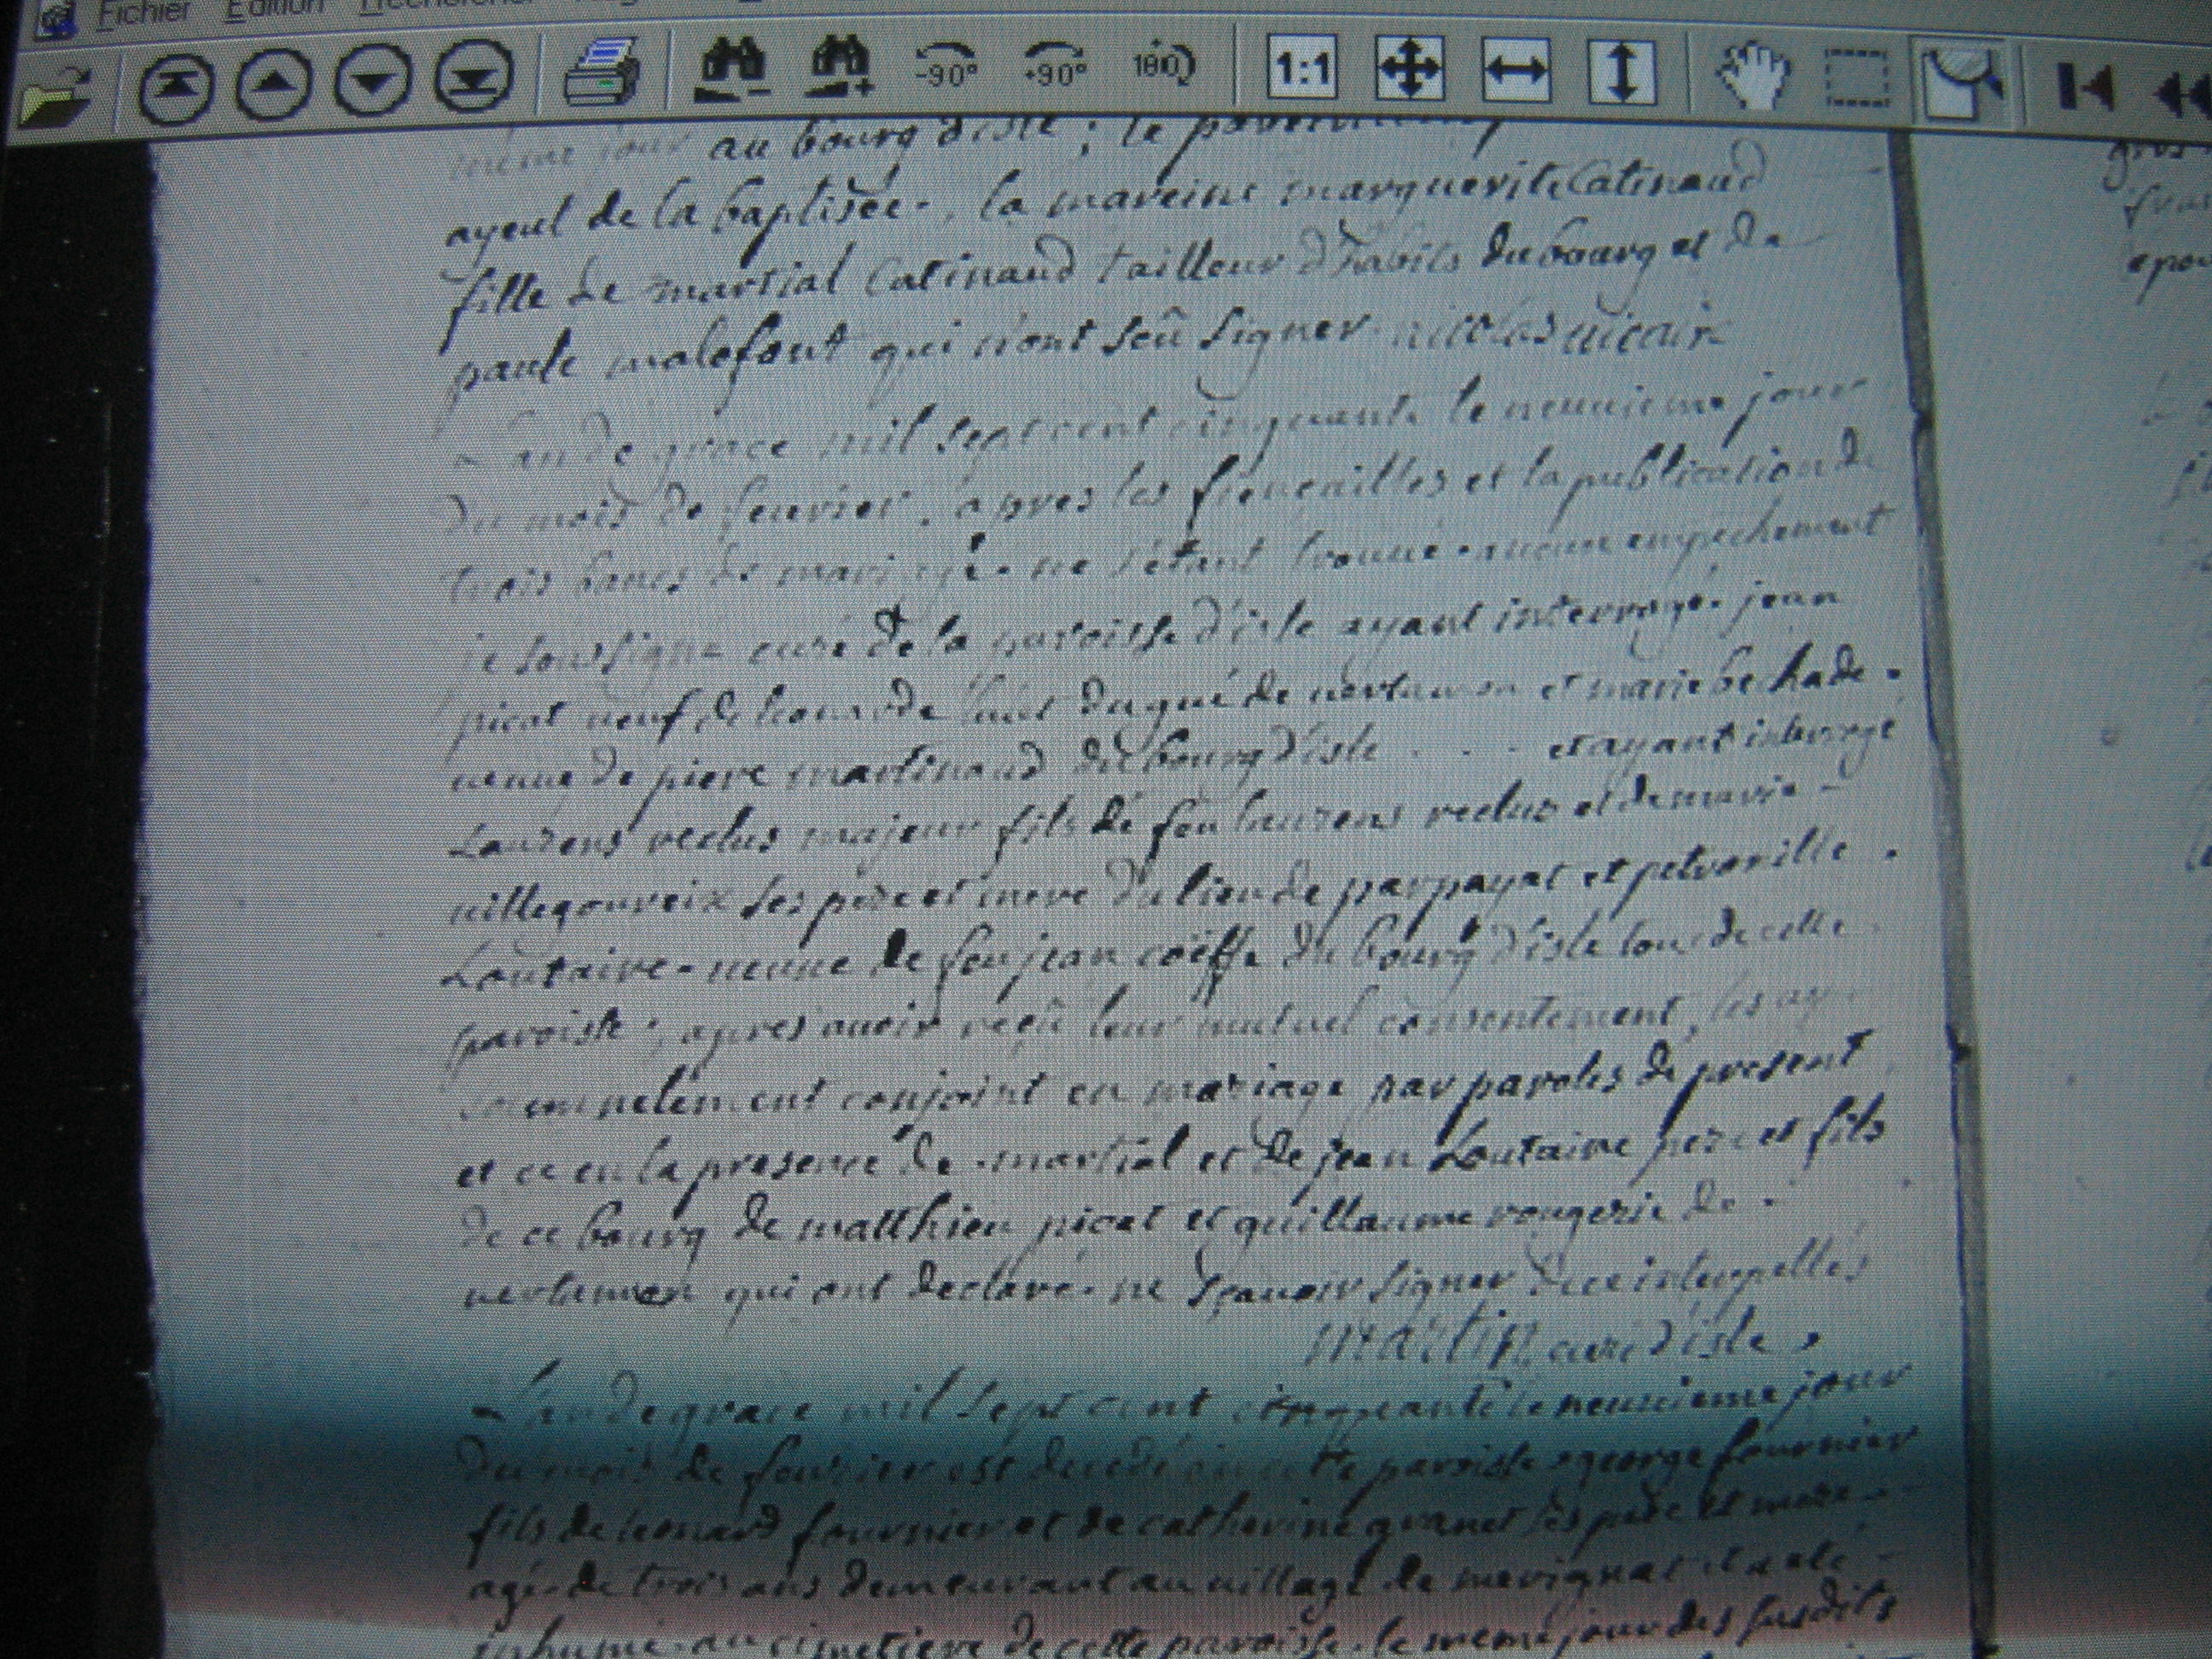 Fichier Edition
-90° +90° 180 1:1
même jour au bourg d'isle ; le
ayeul de la baptisée. la mareine marguerite Catinaud
fille de martial Catinaud tailleur d'habits du bourg et de
paule malefont qui n'ont sçû signer nicolas uicaire
L'an de grace mil sept cent cinquante le neuuieme jour
du mois de feurier, apres les fiençailles et la publication de
trois bancs de mariage. ne s'étant trouué aucun empechement
je soussigné curé de la paroisse d'isle ayant interrogé. jean
picat ueuf de du gué de uertamon et marie bechade.
ueuue de piere martinaud du bourg d'isle . . . et ayant interrogé
Laurens reclus majeur fils de feu laurens reclus et de marie -
uillegoureix ses pere et mere du lieu de parpayat et petronille .
Loutaire. ueuue de feu jean coëffe du bourg d'isle tous de cette
paroisse ; apres auoir reçû leur mutuel consentement, les ay
conjoint en mariage par paroles de present
et ce en la presence de martial et de jean Loutaire pere et fils
de ce bourg de matthieu picat et guillaume rougerie de .
uertamon qui ont declaré. ne sçauoir signer de ce interpellés
martin curé d'isle.
L'an de grace mil sept cent cinquante le neuuieme jour
du mois de feurier est decedé en cette paroisse george fournier
fils de leonard fournier et de catherine granet ses pere et mere -
agé de trois ans demeurant au uillage de merignat il a eté -
inhumé. au cimetiere de cette paroisse. le meme jour des susdits